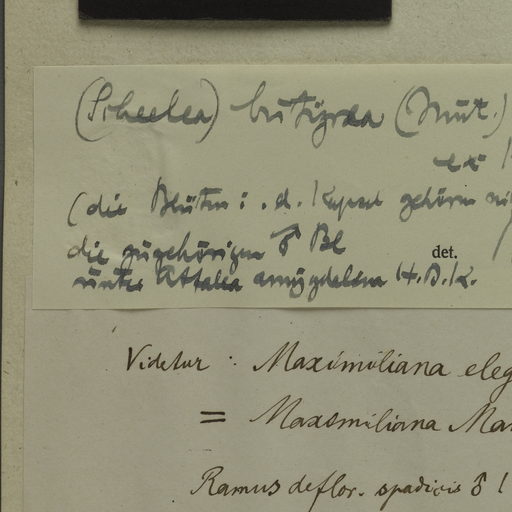 (Scheelea) butyracea (Mut.)
ex
(die Blüten i. d. Kapsel gehören
die zugehörigen ♂ Bl
det.
unter Attalea amygdalina H.B.K.
Videtur : Maximiliana eleg
= Maxsmiliana Mar
Ramus deflor. spadicis ♂ !